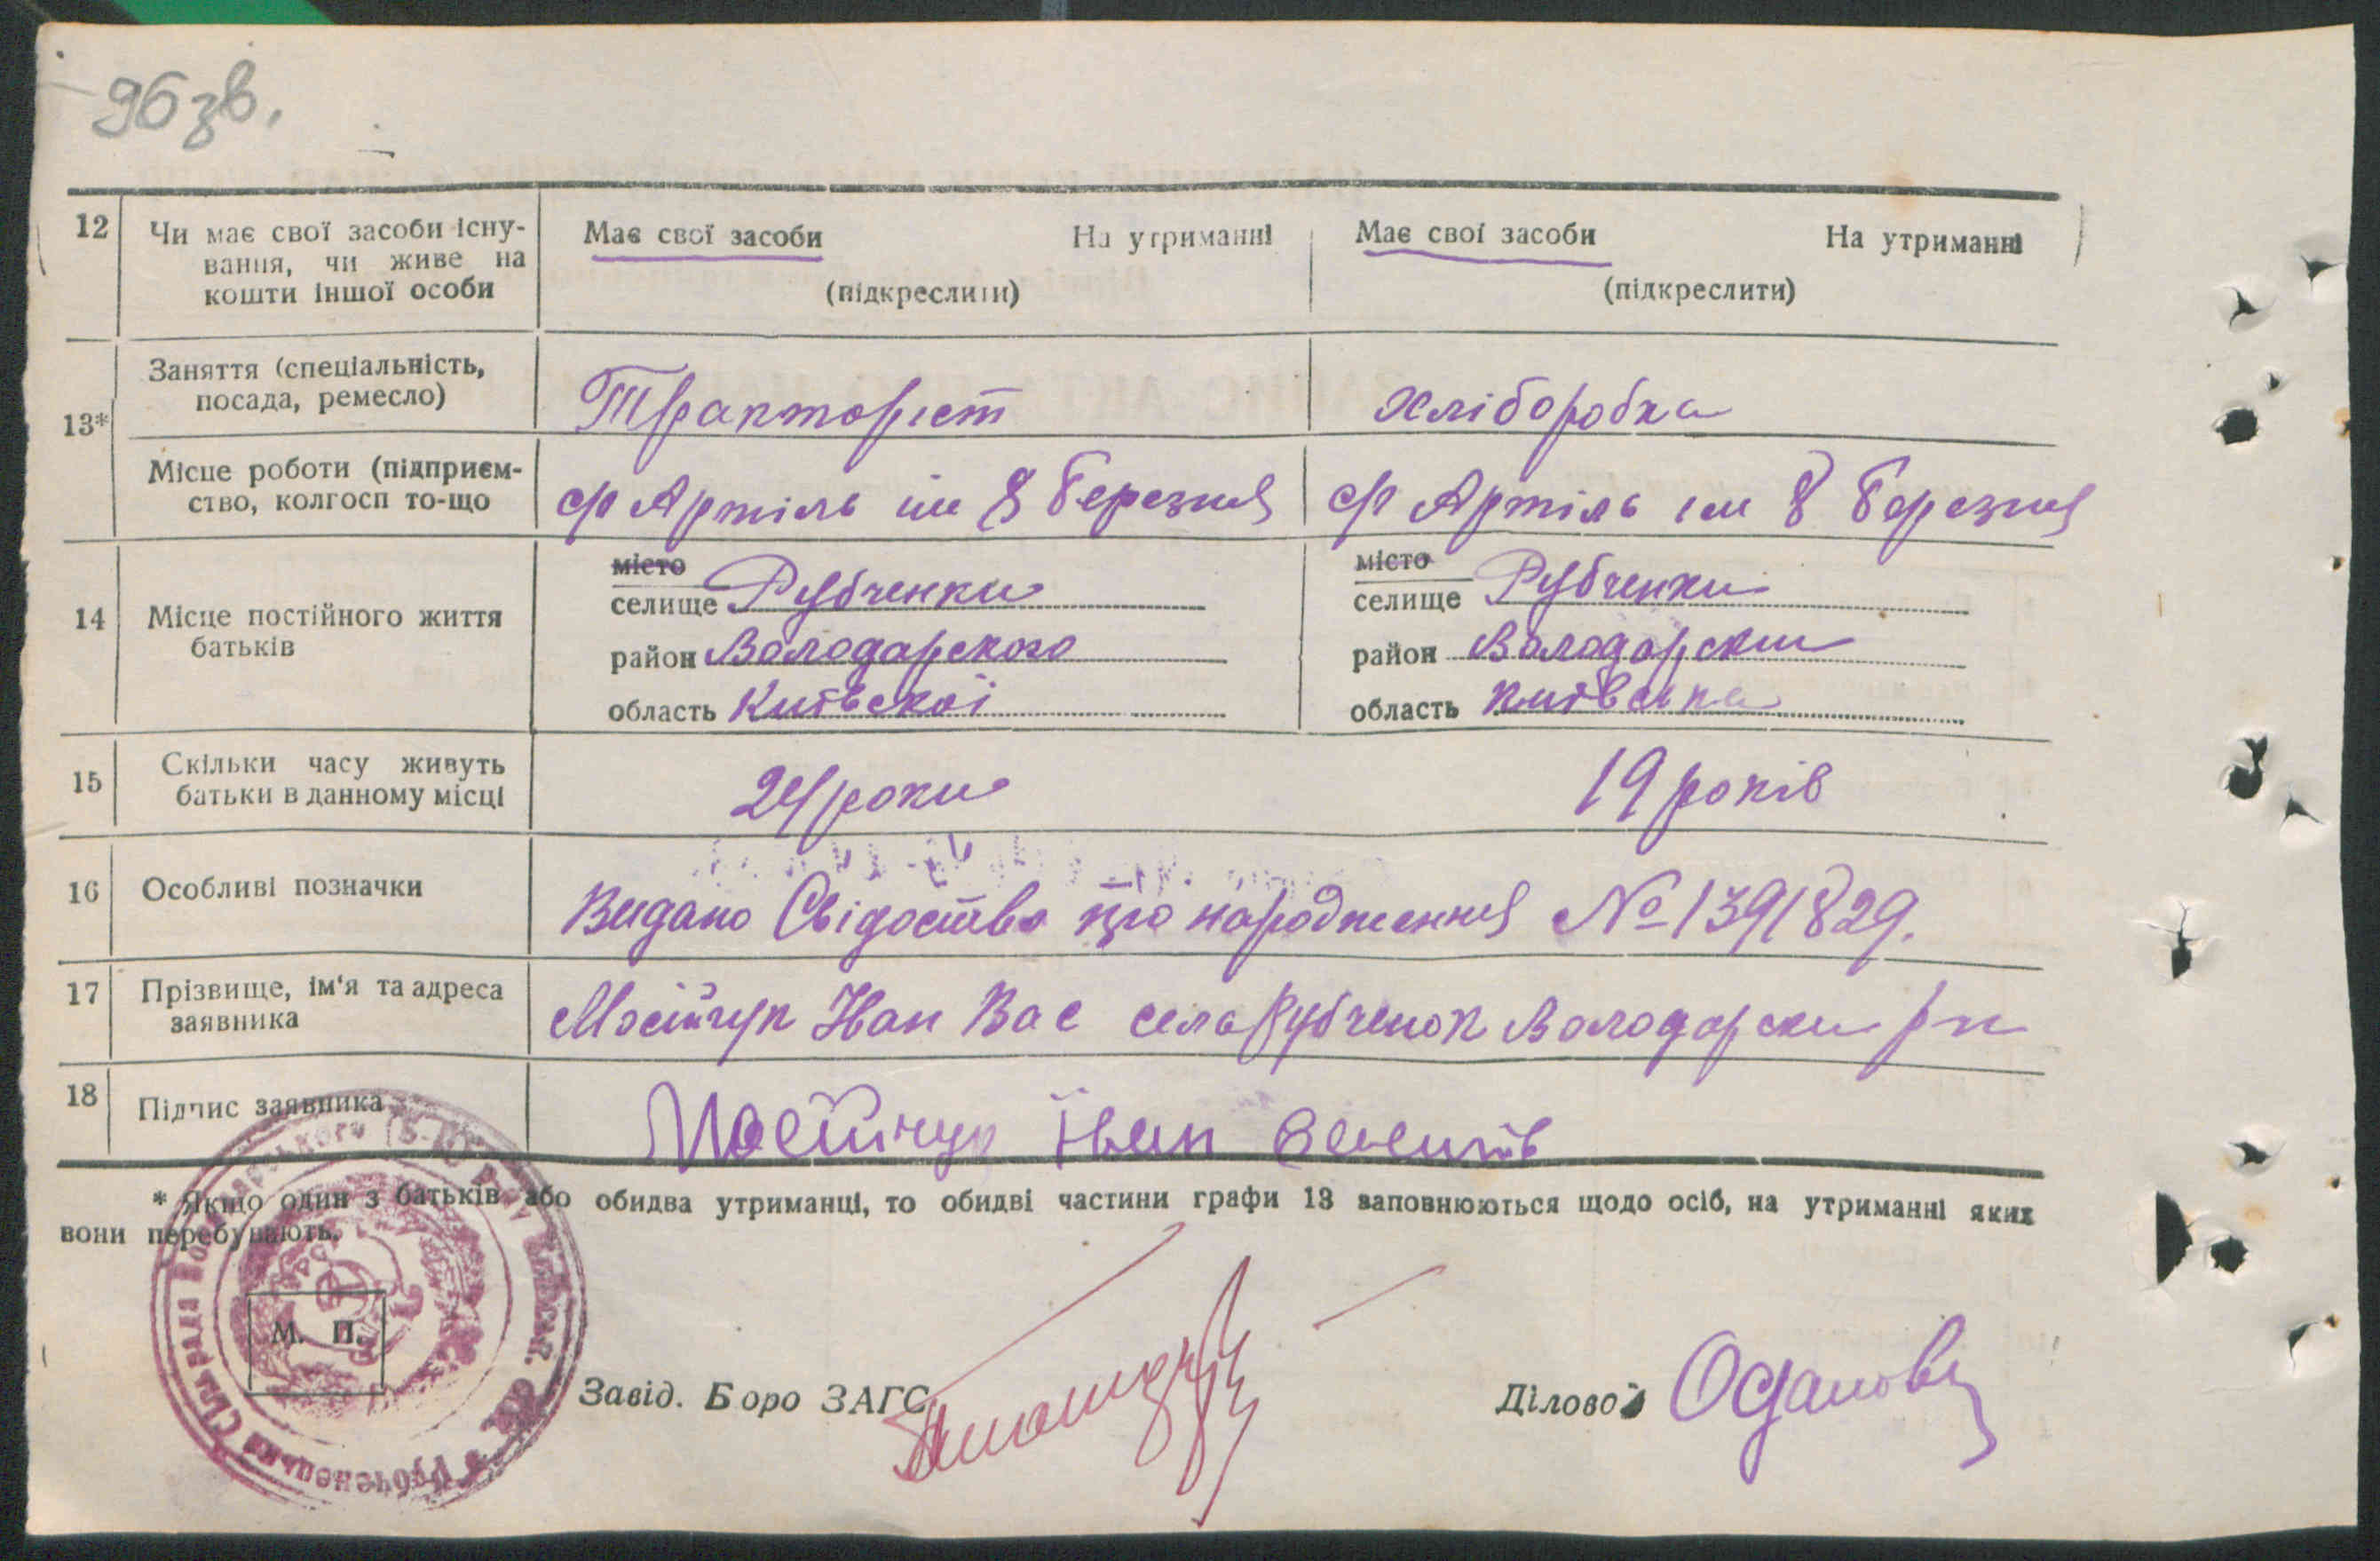 96 зв.
12 Чи має свої засоби існу- Має свої засоби На утриманні Має свої засоби На утриманні
вання, чи живе на
кошти іншої особи (підкреслити) (підкреслити)
13* Заняття (спеціальність,
посада, ремесло) Тракторіст хліборобка
Місце роботи (підприєм-
ство, колгосп то-що с/г Артіль ім 8 березня с/г Артіль ім 8 березня
14 Місце постійного життя
батьків
місто місто
селище Рубченки селище Рубченки
район Володарского район Володарский
область Київскої область Київська
15 Скільки часу живуть
батьки в данному місці 24 роки 19 років
16 Особливі позначки Видано Свідоство про народження № 1391829.
17 Прізвище, ім'я та адреса
заявника Мосійчук Іван Вас села Рубченок Володарски р-н
18 Підпис заявника Мосійчук Іван
* Якщо один з батьків або обидва утриманці, то обидві частини графи 13 заповнюються щодо осіб, на утриманні яких
вони перебувають.
М. П.
Завід. Боро ЗАГС
Діловод
Рубченецька Сільрада